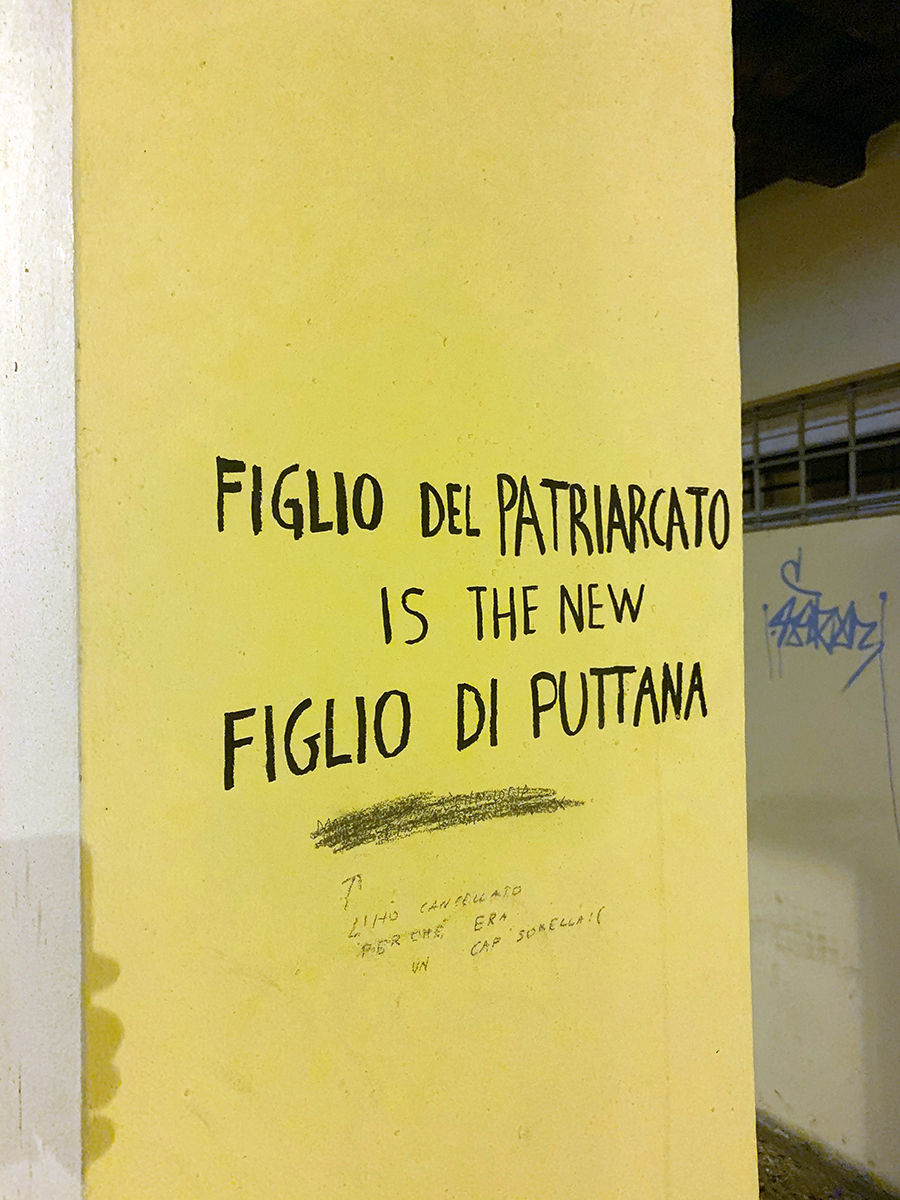 FIGLIO DEL PATRIARCATO
IS THE NEW
FIGLIO DI PUTTANA
L'HO CANCELLATO
PERCHÉ ERA
UN CAP